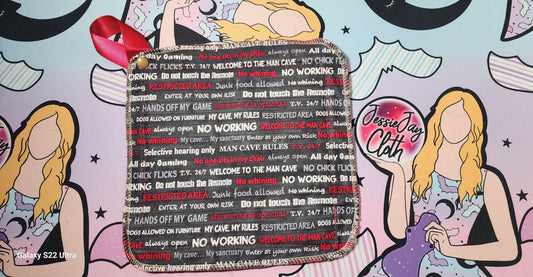 Selective hearing only MAN CAVE RULES always open All day
Gaming No one sits in my chair NO CHICK
CHICK FLICKS T.V. 24/7 WELCOME TO THE MAN CAVE NO CHICK FLICKS
WORKING Do not touch the Remote No whining. NO WORKING
RESTRICTED AREA Junk food allowed No whining.
Remote ENTER AT YOUR OWN RISK Do not touch the Remote
HANDS OFF MY GAME showering is optional T.V. 24/7 HANDS
DOGS ALLOWED ON FURNITURE MY CAVE, MY RULES RESTRICTED AREA DOGS ALLOWED
always open NO WORKING WELCOME TO THE MAN CAVE
My cave... My sanctuary Enter at your own Risk No
Selective hearing only MAN CAVE RULES T.V. 24/7
All day Gaming No one sits in my chair always open All day
NO CHICK FLICKS T.V. 24/7 WELCOME TO THE MAN CAVE NO CHICK
NO WORKING Do not touch the Remote No whining. NO WORKING
RESTRICTED AREA Junk food allowed No whining.
Remote ENTER AT YOUR OWN RISK Do not touch the Remote
HANDS OFF MY GAME showering is optional T.V. 24/7 HANDS
DOGS ALLOWED ON FURNITURE MY CAVE, MY RULES RESTRICTED AREA DOGS ALLOWED
always open NO WORKING WELCOME TO THE MAN CAVE
My cave... My sanctuary Enter at your own Risk No
Selective hearing only MAN CAVE RULES
JessieJay
Cloth
Galaxy S22 Ultra